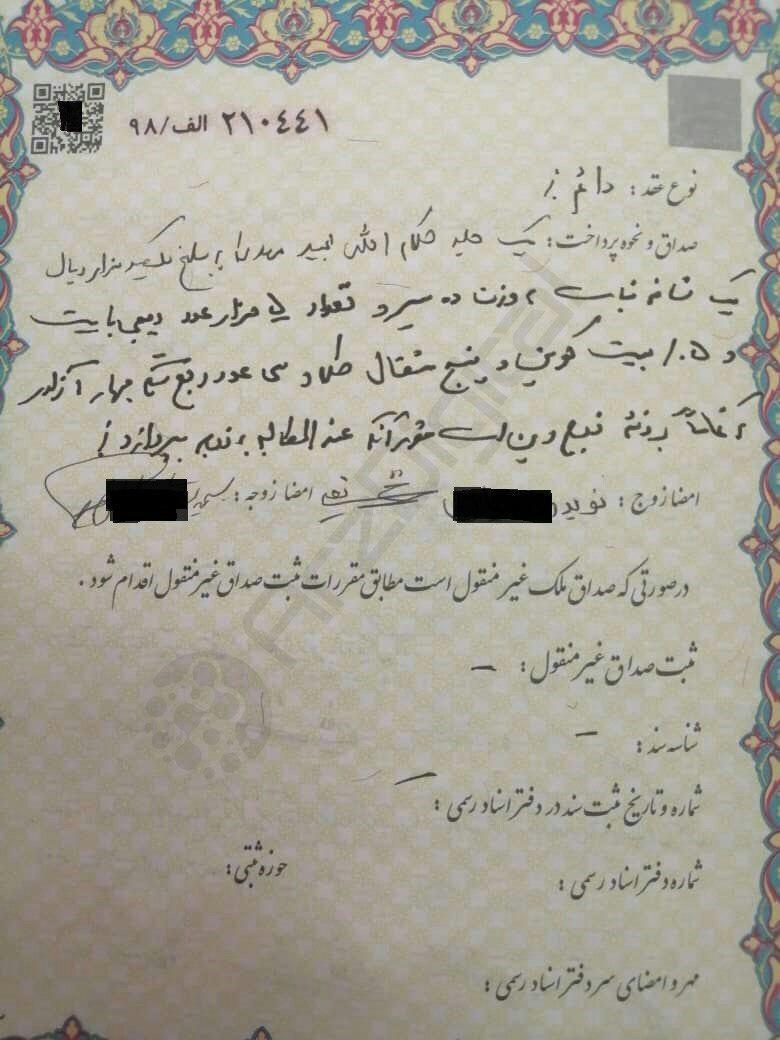 ۲۱۰۴۴۱ الف/۹۸
نوع عقد: دائم
صداق و نحوه پرداخت: یک جلد کلام الله مجید مهریه به مبلغ یکصد هزار ریال
یک شاخه نبات به وزن ده سیر و تعداد هزار عدد دیجی بایت
و ۱.۵ بیت کوین و پنج مثقال طلا و سی عدد ربع سکه بهار آزادی
که تماماً بر ذمه زوج دین است عند المطالبه به زوجه بپردازد
امضا زوج: نوید امضا زوجه: سمیه
درصورتی که صداق ملک غیر منقول است مطابق مقررات ثبت صداق غیر منقول اقدام شود.
ثبت صداق غیر منقول: –
شناسه سند: –
شماره و تاریخ ثبت سند در دفتر اسناد رسمی: –
شماره دفتر اسناد رسمی: حوزه ثبتی:
مهر و امضای سردفتر اسناد رسمی:
ArzDigital